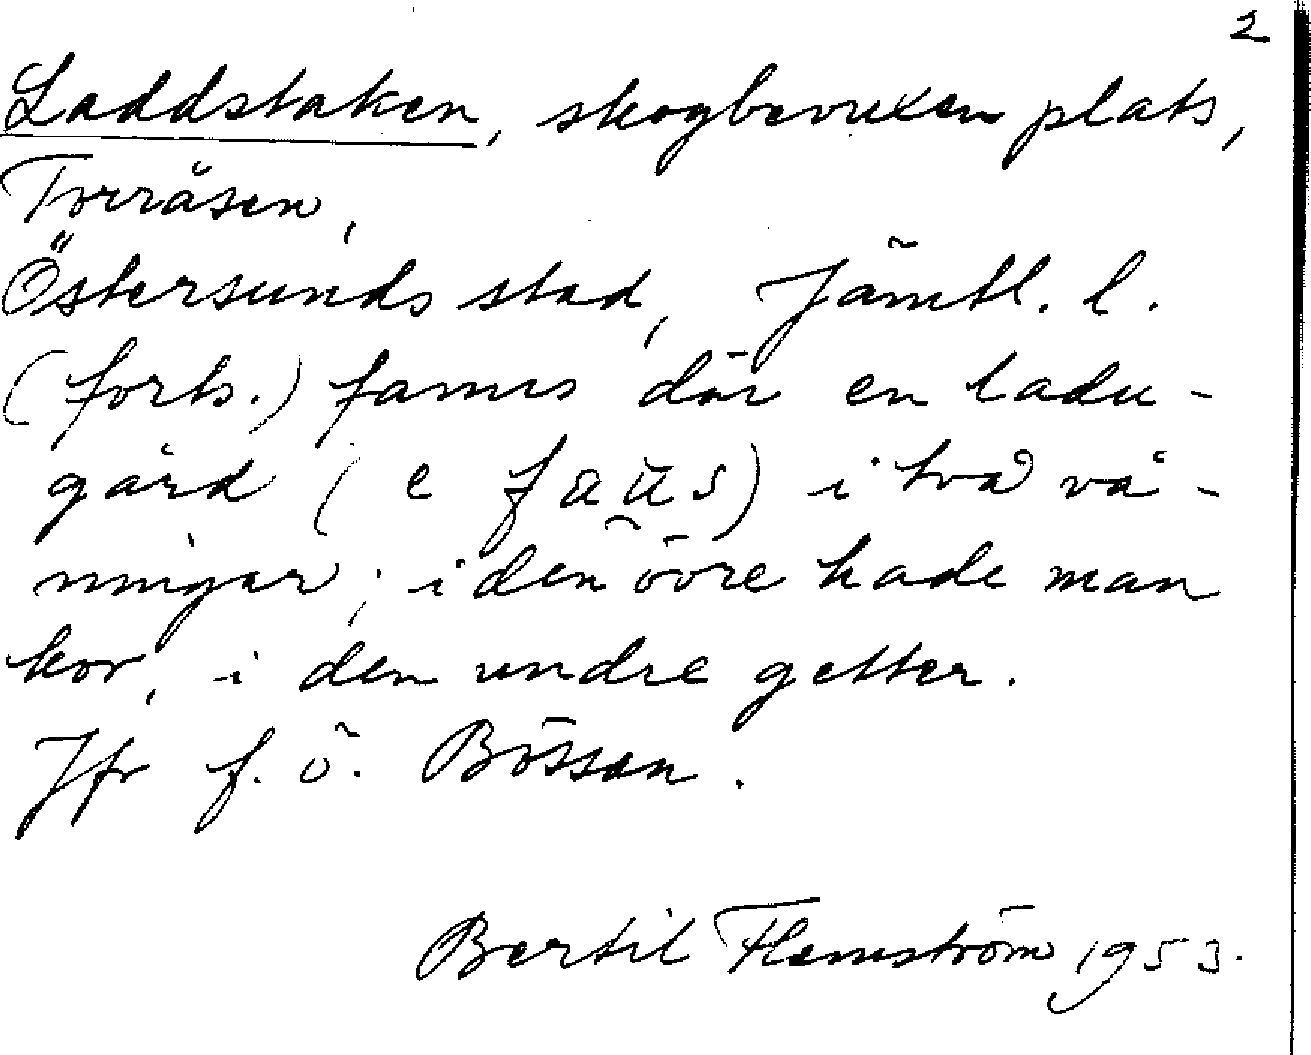 2
Laddstaken, skogbevuxen plats,
Torråsen,
Östersunds stad, Jämtl. l.
(forts.) fanns där en ladu-
gård (e fau̯s) i två vå-
ningar; i den övre hade man
kor, i den undre getter.
Jfr f. ö. Bössan.
Bertil Flemström 1953.